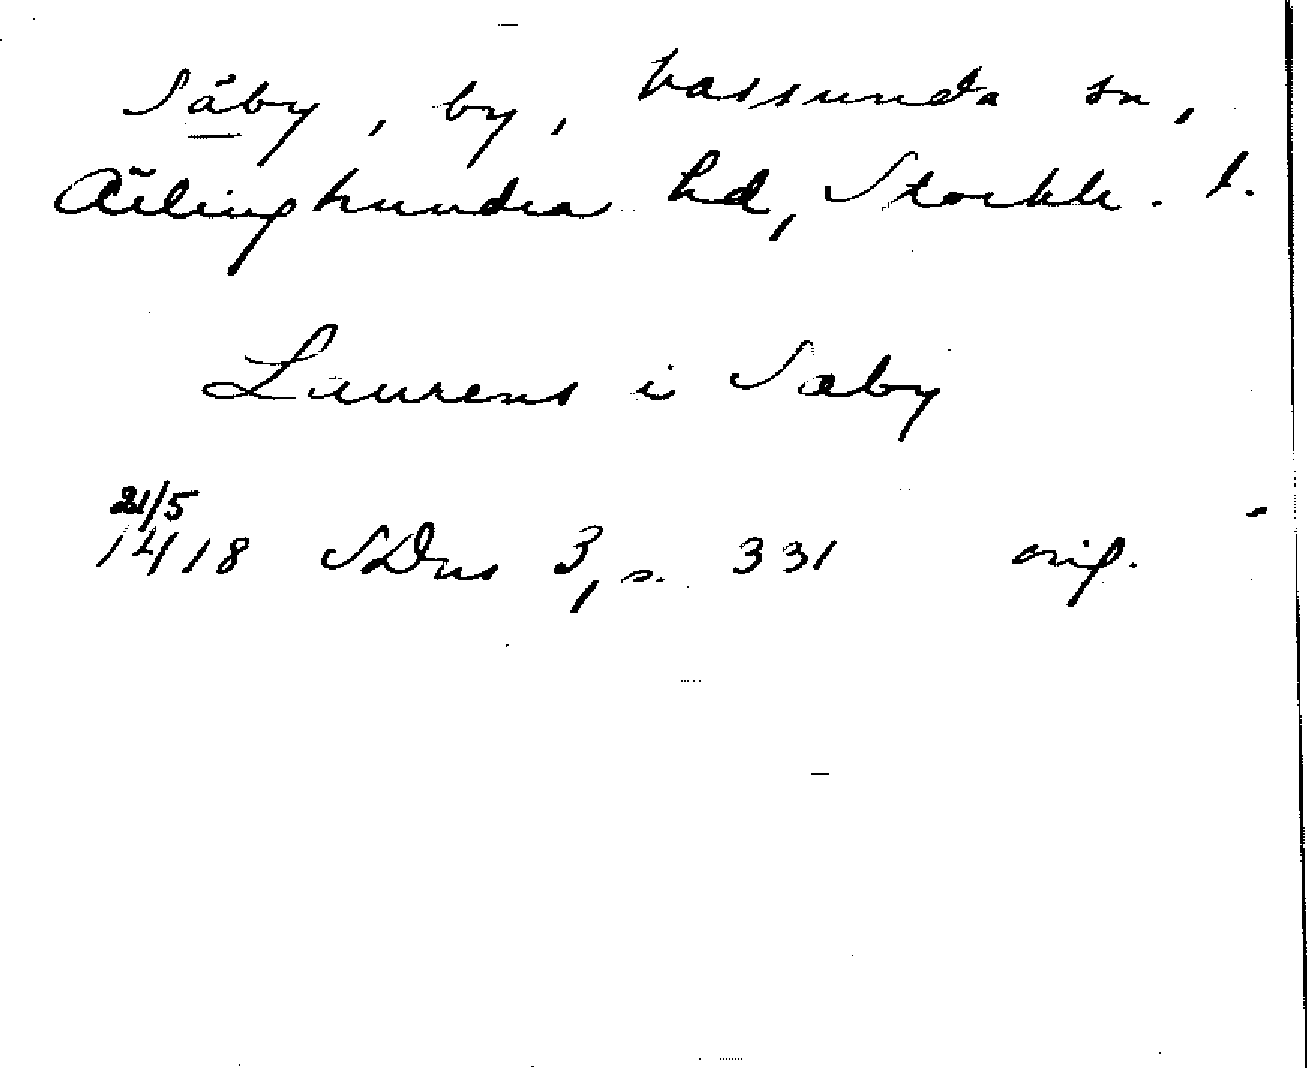 Säby, by, Vassunda sn,
Ärlinghundra hd, Stockh. l.
Laurens i Sæby
21/5
1418 SDns 3, s. 331 orig.